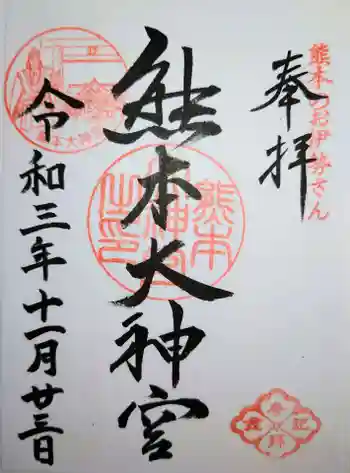 熊本のお伊勢さん
奉拝
熊本大神宮
熊本大神宮之印
令和三年十一月廿三日